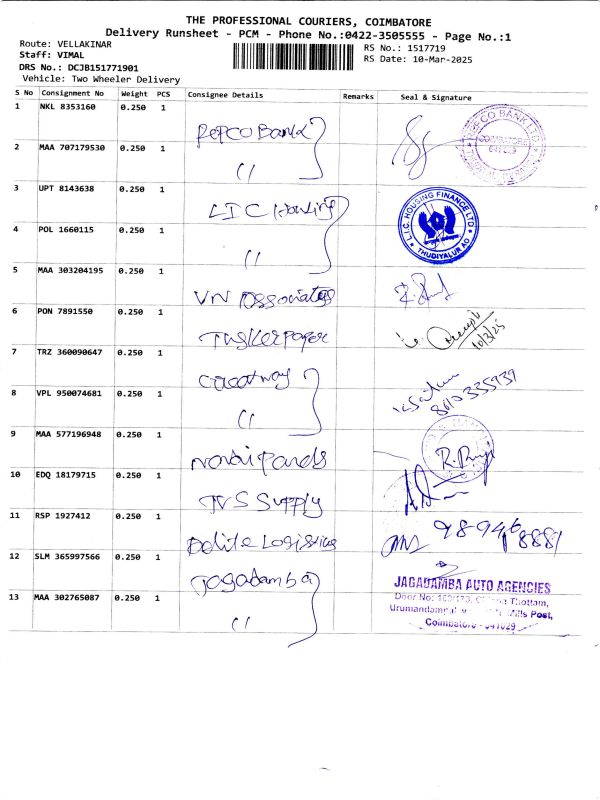 THE PROFESSIONAL COURIERS, COIMBATORE
Delivery Runsheet - PCM - Phone No.:0422-3505555 - Page No.:1
Route: VELLAKINAR
Staff: VIMAL
DRS No.: DCJB151771901
Vehicle: Two Wheeler Delivery
RS No.: 1517719
RS Date: 10-Mar-2025
S No Consignment No Weight PCS Consignee Details Remarks Seal & Signature
1 NKL 8353160 0.250 1 REPCO Bank
2 MAA 707179530 0.250 1 "
REPCO BANK LTD
COIMBATORE
3 UPT 8143638 0.250 1 LIC Housing
4 POL 1660115 0.250 1 "
L.I.C. HOUSING FINANCE LTD
THUDIYALUR AO
5 MAA 303204195 0.250 1 VN Associates
6 PON 7891550 0.250 1 Tusker paper
10/3/25
7 TRZ 360090647 0.250 1
8 VPL 950074681 0.250 1 "
9 MAA 577196948 0.250 1
10 EDQ 18179715 0.250 1 TVS Supply
11 RSP 1927412 0.250 1 Logistics
12 SLM 365997566 0.250 1 Jagadamba
13 MAA 302765087 0.250 1 "
JAGADAMBA AUTO AGENCIES
Door No: Thottam,
Mills Post,
Coimbatore - 641029